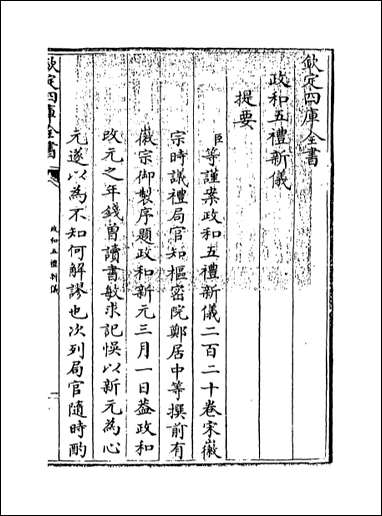 欽定四庫全書
政和五禮新儀
提要
臣等謹案政和五禮新儀二百二十卷宋徽
宗時議禮局官知樞密院鄭居中等撰前有
徽宗御製序題政和新元三月一日葢政和
改元之年錢曽讀書敏求記悞以新元為心
元遂以為不知何解謬也次列局官隨時酌
欽定四庫全書
政和五禮新儀